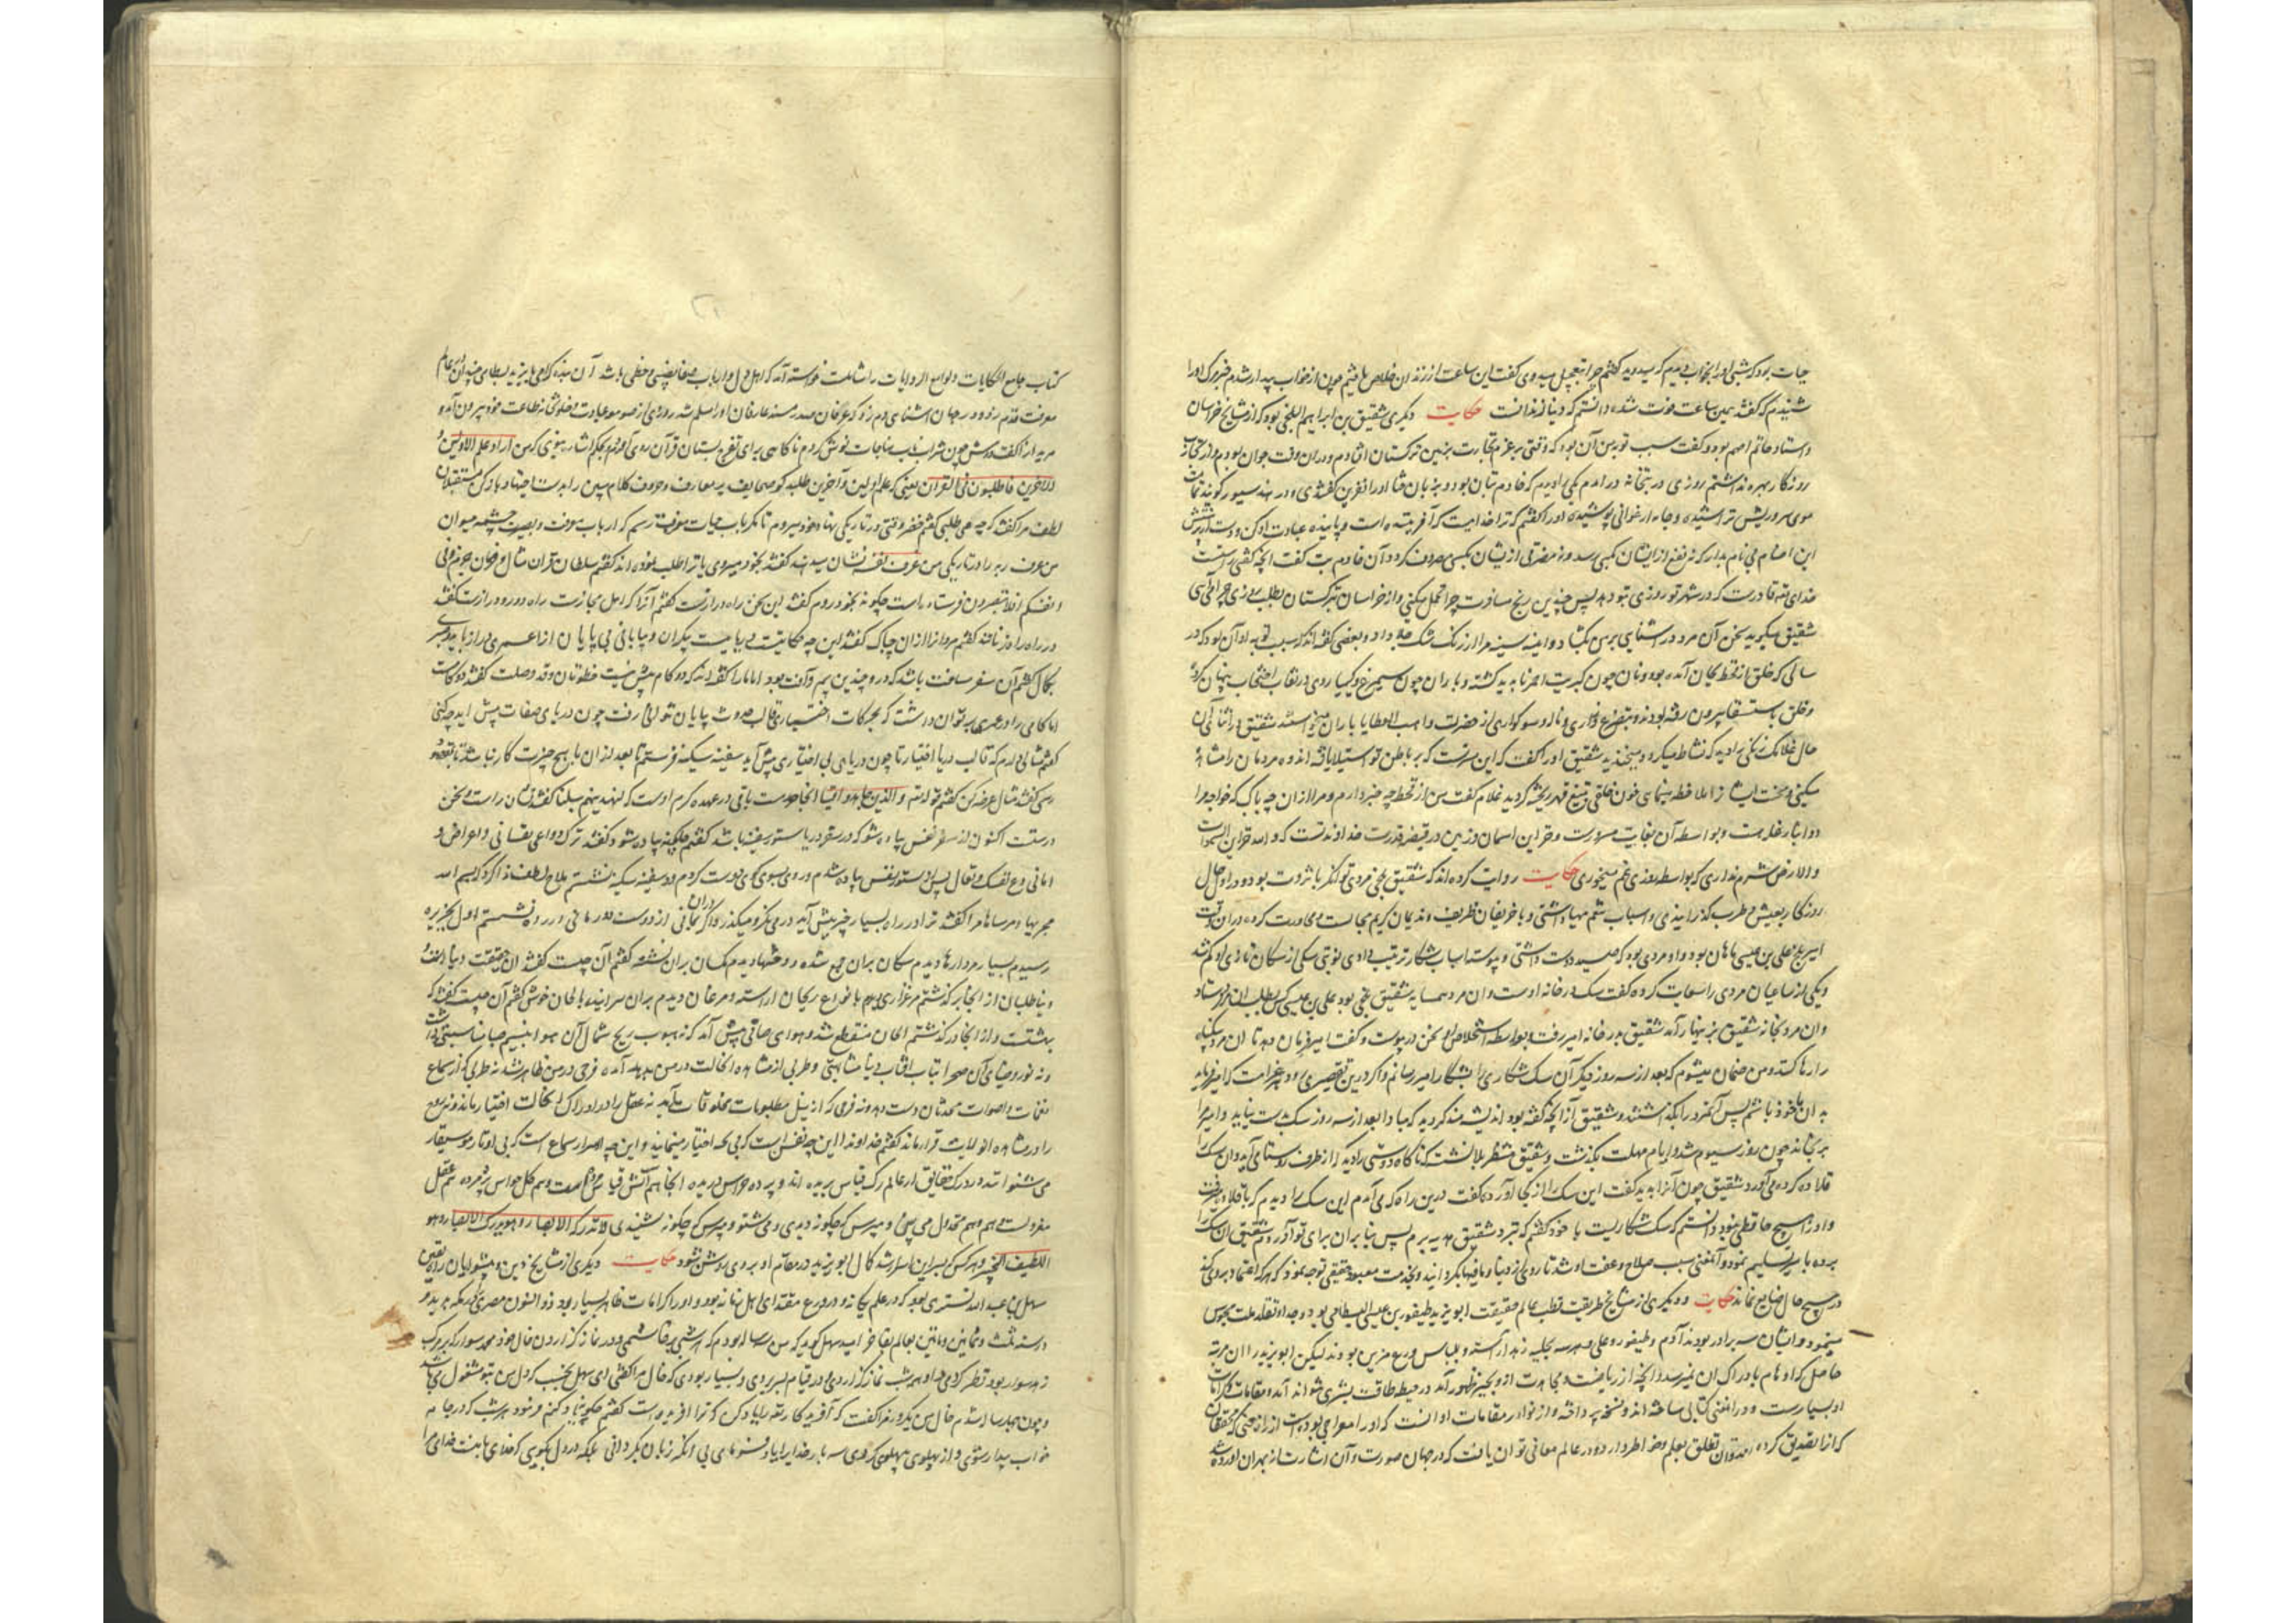 حیات بود که شبی او را بخواب دیدم که میدوید گفتم چرا بتعجیل میدوی گفت این ساعت از زندان خلاص یافتم چون از خواب بیدار شدم خبر مرگ او را
شنیدم که گفتند همین ساعت فوت شد دانستم که دنیا زندانست حکایت دیگری شقیق بن ابراهیم البلخی بود که از مشایخ خراسان
و استاد حاتم اصم بود و گفت سبب توبه من آن بود که وقتی بر عزم تجارت بزمین ترکستان افتادم و دران وقت جوان بودم و از تجارب
روزگار بهره نداشتم روزی در بتخانه در آمدم یکی را دیدم که خادم بتان بود و بزبان
موی سر و ریش تراشیده و جامه ارغوانی پوشیده او را گفتم که ترا خدائیست که آفریننده است و پاینده عبادت او کن و دست از پرستش
این اصنام بی نام بدار که نه نفع ازایشان بکسی رسد و نه مضرتی ازیشان بکسی مصروف گردد آن خادم بت گفت آنچه گفتی راستست
خدای تو قادرست که در شهر تو روزی بتو دهد پس چندین رنج مسافرت چرا تحمل میکنی و از خراسان بترکستان بطلب روزی چرا می آیی
شقیق میگوید سخن آن مرد در آشنایی بر من بگشاد و آینه سینه مرا از زنگ شک جلا داد و بعضی گفته اند که سبب توبه او آن بود که در
سالی که خلق از قحط بجان آمده بود و نان چون کبریت احمر ناپدید گشته و باران چون سیمرغ و کیمیا روی در نقاب احتجاب پنهان کرده
و خلق باستسقا بیرون رفته بودند و بتضرع و زاری و ناله و سوگواری از حضرت واهب العطایا باران میخواستند شقیق در اثنای آن
حال غلامک زنگی را دید که نشاط میکرد و میخندید شقیق او را گفت که این
سکینی و محنت ایشان را ملاحظه بنمای خون خلقی بتیغ قهر ریخته گردید غلام گفت من از قحط چه خبر دارم و مرا از ان چه باک که خواجه مرا
دو انبار غله هست و بواسطه آن بغایت و خزاین آسمان و زمین در قبضه قدرت خداوند تست که و لله خزاین السموات
والارض شرم نداری که بواسطه روزی غم میخوری حکایت روایت کرده اند که شقیق بلخی مردی توانگر با ثروت بود و در اوایل حال
روزگار بعیش و طرب گذرانیدی و اسباب تنعم مهیا داشتی و با حریفان ظریف و ندیمان کریم مجالست و محاورت کرده دران وقت
امیر بلخ علی بن عیسی ماهان بود و او مردی بود که صید دوست داشتی و پیوسته اسباب شکار ترتیب دادی نوبتی سگی از سگان تازی او گم شد
و یکی از ساعیان مردی را سعایت کرده گفت سگ در خانه اوست و ان مرد همسایه شقیق بلخی بود علی بن عیسی کس بطلب ان مرد فرستاد
وان مرد بخانه شقیق بزینهار آمد شقیق بدر خانه امیر رفت و بواسطه استخلاص او سخن در پیوست و گفت امیر فرمان دهد تا ان مرد بیگناه
را رها کنند و من ضمان میشوم که بعد از سه روز دیگر آن سگ شکاری را بشکار امیر رسانم و اگر درین تقصیری رود بهر غرامت که امیر فرماید
بدان ماخوذ باشم پس آنمرد را بگذاشتند و شقیق از آنچه گفته بود اندیشه مند گردید که مبادا بعد از سه روز سگ بدست نیاید و امیر مرا
برنجاند چون روز سیوم شد و ایام مهلت بگذشت و شقیق منتظر بلا نشست که ناگاه دوستی را دید که از طرف روستا می آید و آن سگ را
قلاده کرده می آورد شقیق چون آنرا بدید گفت این سگ را از کجا آوردی گفت درین راه که می آمدم این سگ را دیدم که با قلاده میرفت
و او را هیچ حافظی نبود دانستم که سگ شکاریست با خود گفتم که بنزد شقیق هدیه برم پس بنا بران برای تو آوردم شقیق آن سگ را
برده بامیر تسلیم نمود و آنمعنی سبب صلاح و عفت او شد تا روی از دنیا و مافیها بگردانید و بخدمت معبود حقیقی توجه نمود که هر که اعتماد بروی کند
در هیچ حال ضایع نماند حکایت و دیگری از مشایخ طریقت قطب عالم حقیقت ابو یزید طیفور بن عیسی البسطامی بود و جد او تقلد ملت مجوس
مینمود و ایشان سه برادر بودند آدم و طیفور و علی و هر سه بحلیه زهد آراسته و بلباس ورع مزین بودند لیکن ابو یزید را ان مرتبه
حاصل که اوهام بادراک ان نمیرسد و آنچه از ریاضت و مجاهدت ازو بحیز ظهور آمد در حیطه طاقت بشری نتواند آمد و مقامات و کرامات
او بسیارست و در انمعنی کتابی ساخته اند و نسخه پرداخته و از نوادر مقامات او انست که او را معراجی بوده است
که آنرا تصدیق کرده اند و توان تعلق بعلم و خواطر دارد و در عالم معانی توان یافت که در جهان صورت و آن اشارتها از بهر آن آورده شد
کتاب جامع الحکایات و لوامع الروایات را شاملست خواسته آمد که اهل دل و ارباب صفا را نصیبی و حظی باشد آن بنده گرامی بایزید بسطامی چندان در عالم
معرفت قدم زد و در جهان آشنایی دم زد که عرفان صدر مسند عارفان او را مسلم شد روزی از صومعه عبادت و خلوتخانه طاعت خود بیرون آمد و
مریدانرا گفت دوش چون شراب ناب مناجات نوش کردم ناگاهی برای تفرج بستان قرآن روی آوردم بحکم اشارت نبوی که من اراد علم الاولین و
الاخرین فاطلبوه فی القران یعنی که علم اولین و آخرین طلبد گو صحایف پر معارف و حروف کلام مبین را بدست اجتهاد باز کن مستقبلان
لطف مرا گفتند که چه می طلبی گفتم خضر وقتی در تاریکی نهاد خود میروم تا مگر بآب حیات معرفت رسم که ارباب معرفت و بصیرت چشمه حیوان
من عرف ربه را در تاریکی من عرف نفسه نشان میدهند گفتند بخود میروی یا ترا طلب نموده اند گفتم سلطان قرآن مثال و فرمان چون و فی
انفسکم افلا تبصرون فرستاده است چگونه بخود روم گفتند این سخن راه درازست گفتم آنرا که اهل مجازست راه دور و درازست گفتند
در راه فراز نامند گفتم مرد از ان چه باک گفتند این چه حکایتست دریاییست بیکران و بیابانی بی پایان
بکمال گفتم آن سفر مسافت باشد که درو چندین بیم و آفت بود اما ما را گفته اند که دو گام بیش نیست خطوتان و قد وصلت گفتند دو گامست
اما گامی را و عمری بر توان داشت که بحرکات اختیاری قالب حدوث بپایان نتوان رفت چون دریای صفات پیش آید چه کنی
گفتم شنای دارم که تا لب دریا اختیار تا چون دریای بی اختیاری پیش آید سفینه سکینه فرستم تا بعد از ان با هیچ چیزت کار نباشد
رسی گفتند مثال عرضه کن گفتم قوله تعالی والذین جاهدوا فینا اینجا حدوست باقی در عهده کرم اوست که لنهدینهم سبلنا گفتند نشان راست و سخن
درستست اکنون از سفر نفس پیاده شو که در سفر دریا ستور سفینه باشد گفتم چگونه پیاده شوم گفتند ترک دواعی نفسانی و اعراض و
امانی دع نفسک و تعال پس از ستور نفس پیاده شدم و روی بسوی کوی دوست کردم و در سفینه سکینه نشستم ملاح لطف ندا کرد که بسم الله
مجریها و مرساها مرا گفتند ترا در راه بسیار چیز پیش آید درمی نگر و میگذر و اگر بمانی دران از دوست دور مانی و در رو نشستم اول بجزیره
رسیدم بسیار مردارها دیدم سگان بران جمع شده و وحشها دیدم مگسان بران نشسته گفتم آن چیست گفتند این حقیقت دنیا است و
دنیا طلبان از انجا بر گذشتم مرغزاری دیدم بانواع ریحان آراسته و مرغان دیدم بران سرایند بالحان خوش گفتم آن چیست گفتند که
بهشتست و از انجا درگذشتم الحان منقطع شد و هوای صافی پیش آمد که نه هبوب ریح شمال آن هوا بنسیم صبا مناسبتی داشت
و نه نور و ضیای آن صحرا بتاب آفتاب دنیا مشابهتی و طربی از مشاهده انحالت در من پدید آمد فرحی در من ظاهر شد نه طربی که از سماع
نغمات و اصوات محدثان دست دهد و نه فرحی که از نیل مطلوبات مخلوقات بر آید نه عقل را در ادراک آن حالت اختیار ماند و نه روح
را در مشاهده آن ولایت قرار ماند گفتم خداوندا این چه نفس است که بی لحه اختیار مینماید و این چه اسرار سماع است که بی اوتار موسیقار
می شنوانند و در درک حقایق ان عالم رگ قیاس بریده اند و پرده حواس دریده آنجا هم آتش قیاس هم کل حواس پژمرده هم عقل
معزولست هم وهم مخذول می بین و مپرس که چگونه دیدی و می شنو و مپرس که چگونه شنیدی لا تدرکه الابصار و هو یدرک الابصار و هو
اللطیف الخبیر و هر کس که بسر این اسرار رسد کمال ابو یزید در مقام او بروی روشن شود حکایت دیگری از مشایخ دین و پیشوایان راه یقین
سهل بن عبد الله تستری بود که در علم یگانه و در ورع مقتدای اهل زمانه بود و او را کرامات ظاهر بسیار بود ذو النون مصری را در مکه بدید و
در سنه ثلث و ثمانین و مائتین بعالم بقا خرامید سهل گوید که من سه ساله بودم که هر شبی برخاستمی و در نماز گزاردن خال خود محمد سوار که بزرگ
زهد سوار بود نظر کردمی و او همه شب نماز گزاردی و در قیام بسر بردی و بسیار بودی که خال مرا گفتی ای سهل بخسب که دل من بتو مشغول میباشد
و چون چهار ساله شدم خال من یکروز مرا گفت که آفریدگار ترا یاد کن که ترا آفریده است گفتم چگونه یاد کنم فرمود هر شب که در جامه
خواب بیدار شوی و از پهلوی بپهلوی گردی سه بار خدایرا یاد کن و ثنای بی آنکه زبان بگردانی بلکه در دل بگویی که خدای با منست خدای مرا